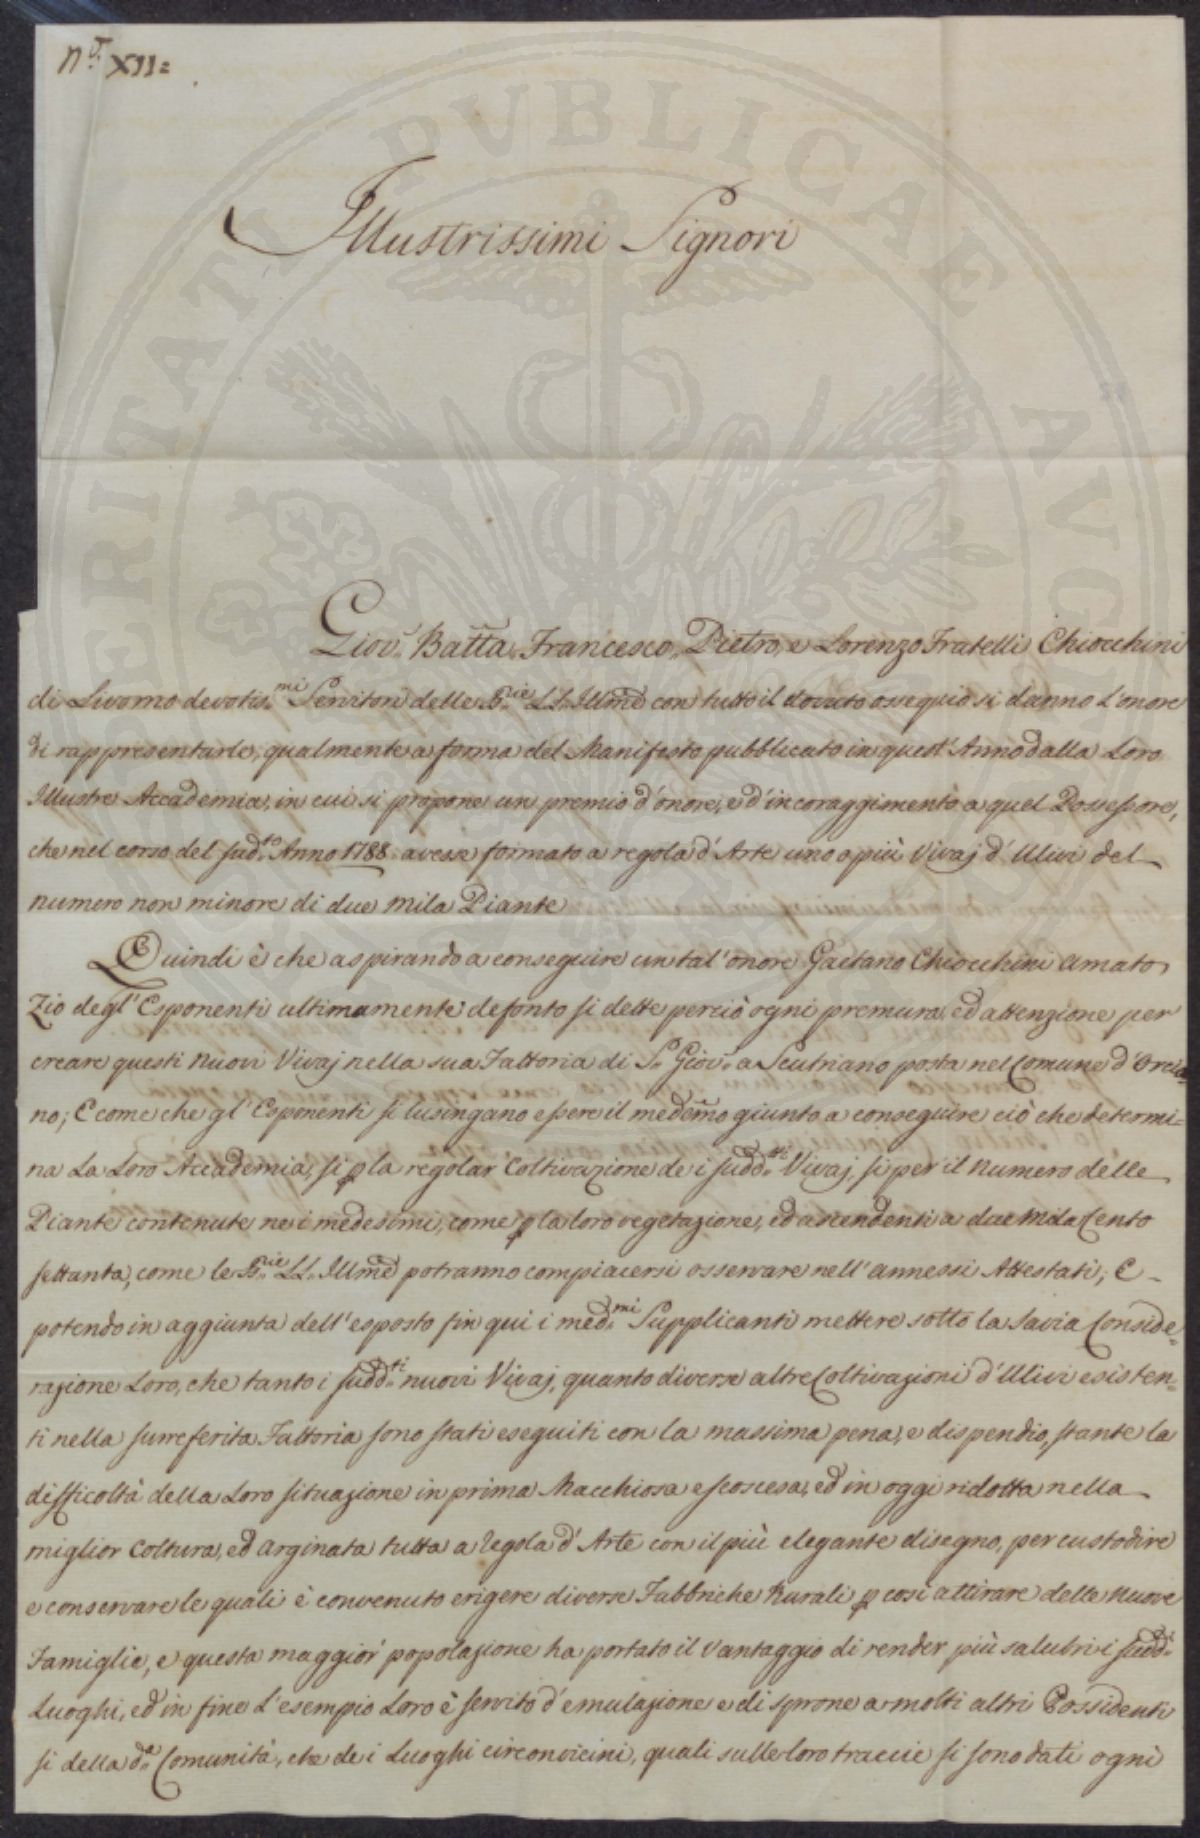 N.º XII=
Illustrissimi Signori
Giov. Batta, Francesco, Pietro, e Lorenzo Fratelli Chiocchini
di Livorno devotis.mi Servitori delle S.rie LL. Illme con tutto il dovuto ossequio si danno l'onore
di rappresentarle, qualmente a forma del Manifesto pubblicato in quest'Anno dalla Loro
Illustre Accademia, in cui si propone un premio d'onore, e d'incoraggimento a quel Possessore,
che nel corso del sud.to Anno 1788. avesse formato a regola d'Arte uno o più Vivaj d'Ulivi del
numero non minore di due mila Piante
Quindi è che aspirando a conseguire un tal'onore Gaetano Chiocchini amato
Zio degl'Esponenti ultimamente defonto si dette perciò ogni premura, ed attenzione per
creare questi nuovi Vivaj nella sua Fattoria di S. Giov. a Scutriano posta nel Comune d'Orcia=
no; E come che gl'Esponenti si lusingano essere il medemo giunto a conseguire ciò che determi=
na La Loro Accademia, si p la regolar Coltivazione de i sudd.ti Vivaj, si per il numero delle
Piante contenute ne i medesimi, come p la loro vegetazione, ed ascendenti a due mila Cento
settanta, come le S.rie LL. Illme potranno compiacersi osservare nell'annessi Attestati; E
potendo in aggiunta dell'esposto fin qui i med.mi Supplicanti mettere sotto la Savia Conside=
razione Loro, che tanto i sudd.ti nuovi Vivaj, quanto diverse altre Coltivazioni d'Ulivi esisten=
ti nella surreferita Fattoria sono stati eseguiti con la massima pena, e dispendio, stante la
difficoltà della Loro situazione in prima Macchiosa e scoscesa, ed in oggi ridotta nella
miglior Coltura, ed arginata tutta a regola d'Arte con il più elegante disegno, per custodire
e conservare le quali è convenuto erigere diverse Fabbriche Rurali p così attirare delle nuove
Famiglie, e questa maggior popolazione ha portato il vantaggio di render più salubri i sudd.i
Luoghi, ed in fine L'esempio Loro è servito d'emulazione e di sprone a molti altri Possidenti
si della d.a Comunità, che de i Luoghi circonvicini, quali sulle loro traccie si sono dati ogni
VERITATI PUBLICAE AUG